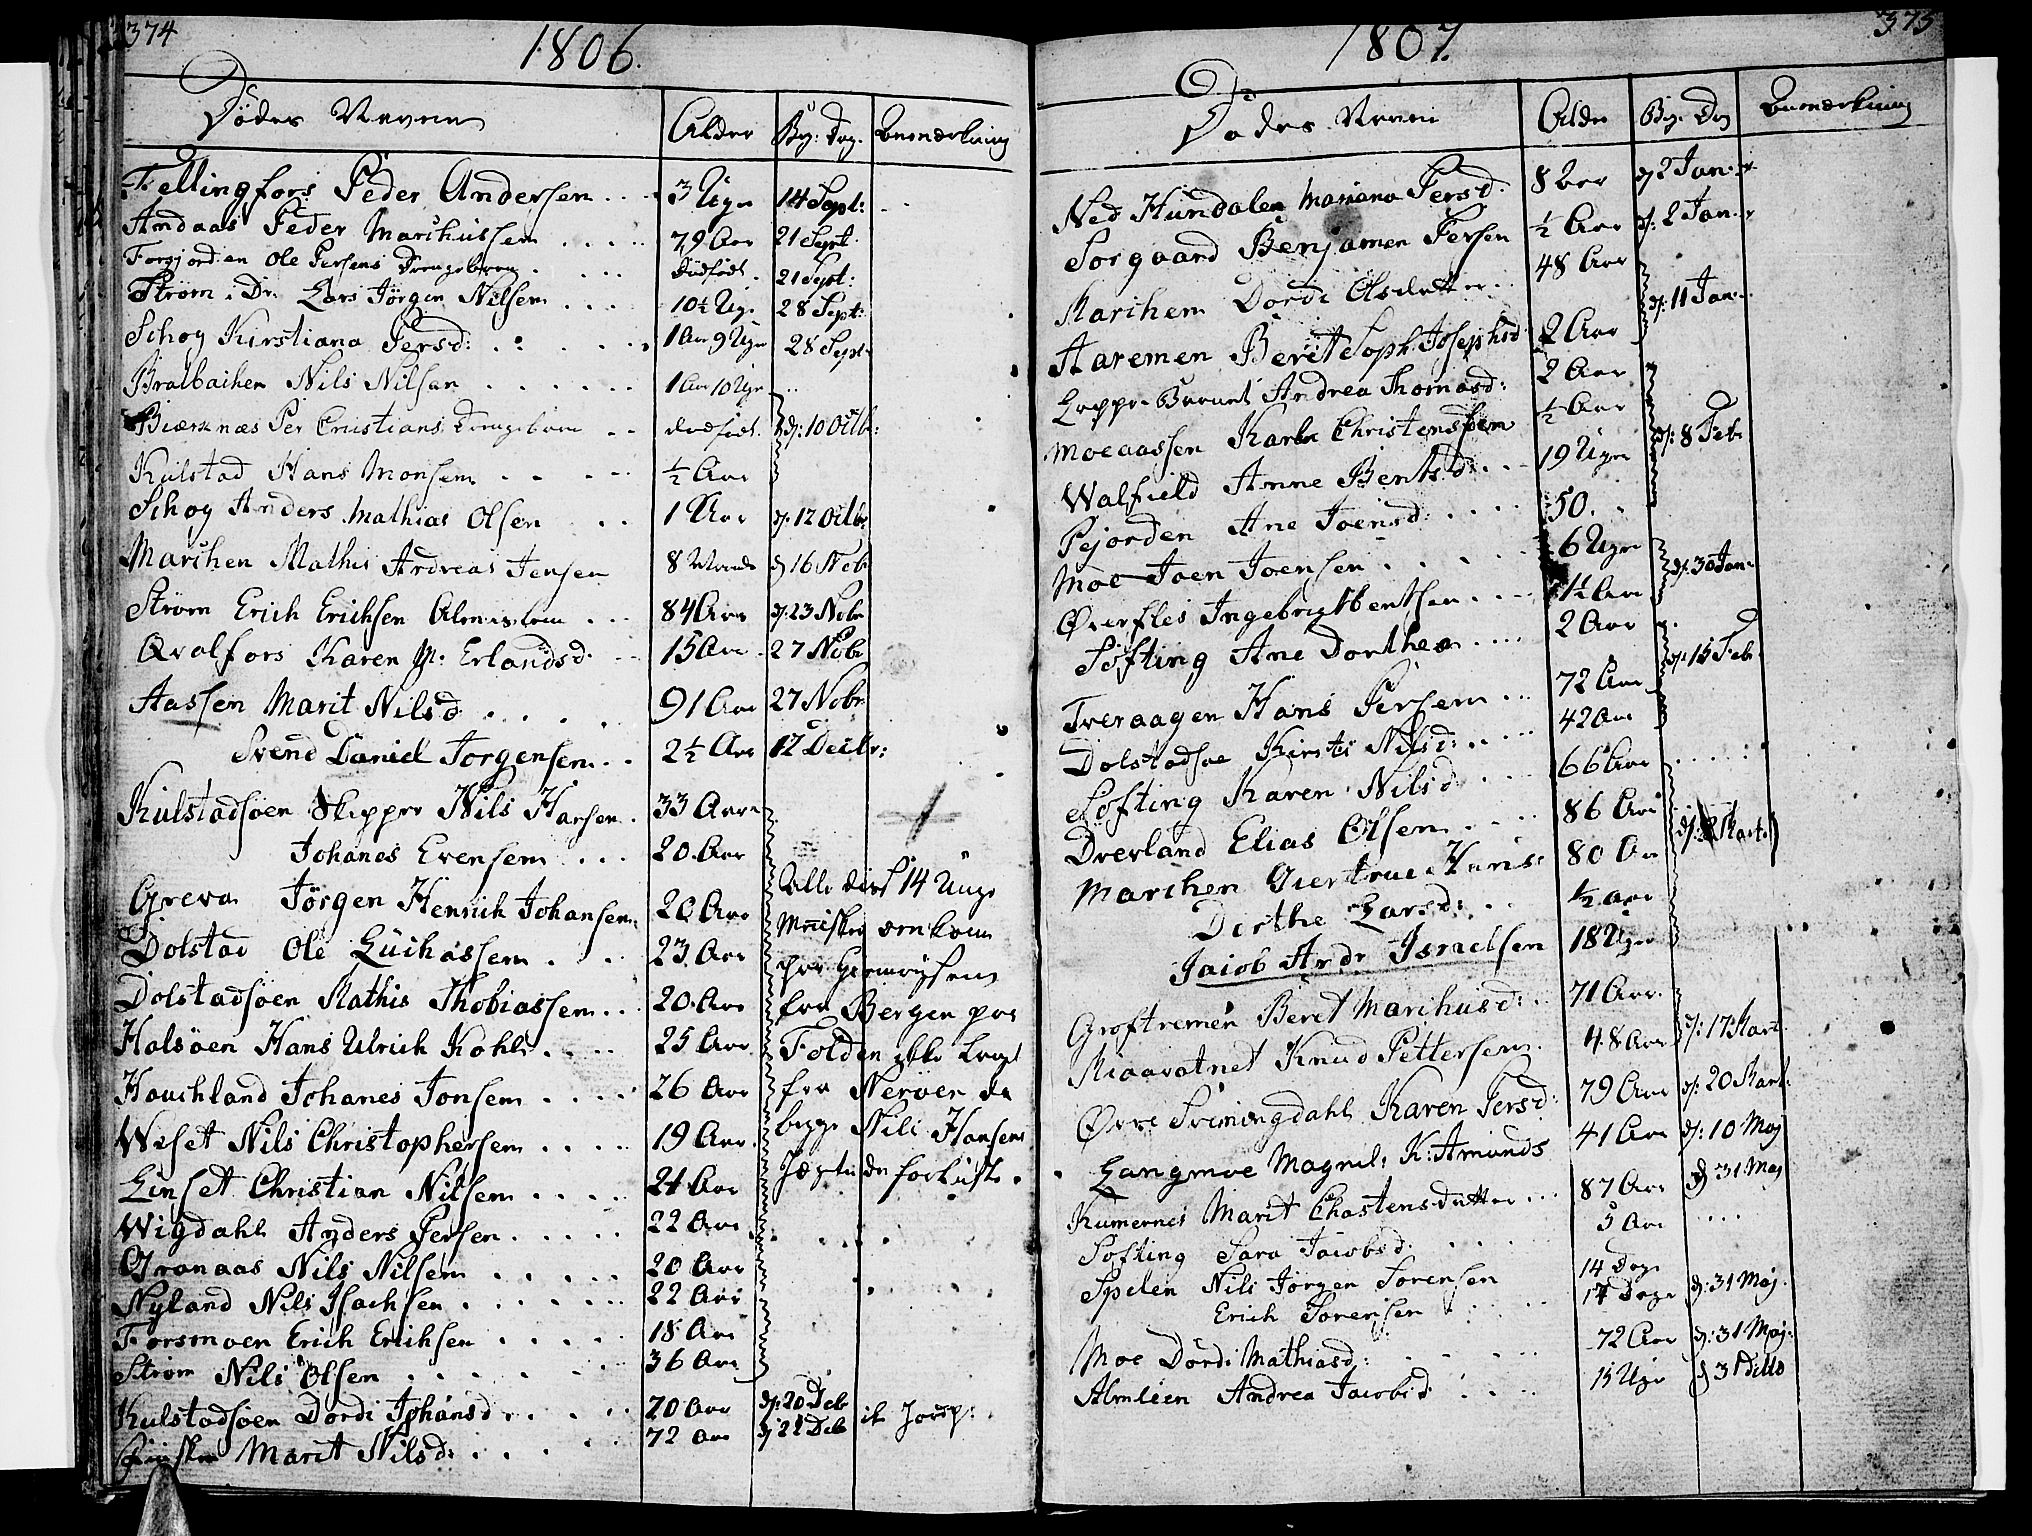 374
1806.
Dødes Navne Alder Beg: Dag. Bemærkning
Fellingfors Peder Andersen 3 Uger 14 Sept:
Andaas Peder Marchussen 79 Aar 21 Sept
Forgjorden Ole Persens Drengebarn dødfødt. 21 Sept:
Strøm i Dr. Lars Jörgen Nilsen 10½ Ug. 28 Sept:
Schog Kirstiana Persd: 1 Aar 9 Uger 28 Sept
Nils Nilsen 1 Aar 10 Uger
Biærnæs Per Cristians Drengebarn dødfødt. d: 10 Octbr:
Kulstad Hans Monsen ½ Aar
Schog Anders Mathias Olsen 1 Aar d: 12 Octbr
Marchen Mathis Andreas Jensen 8 d 16 Nobr
Strøm Erich Erichsen 84 Aar d: 23 Nobr
Qvalfors Karen M: Erlandsd: 15 Aar 27 Nobr
Aassen Marit Nilsd 91 Aar 27 Nobr
Svend Daniel Jorgensen 2½ Aar 12 Decbr:
Kulstadsøen Skipper Nils Hansen 33 Aar
Johanes Evensen 20 Aar
Greva Jörgen Henrich Johansen 20 Aar
Dolstad Ole Luchassen 23 Aar
Dolstadsøen Mathis Thobiassen 20 Aar
Holsøen Hans Ulrich Kohl 25 Aar
Houchland Johanes Jonsen 26 Aar
Weset Nils Christophersen 19 Aar
Linset Christian Nilsen 24 Aar
Wigdahl Anders Persen 22 Aar
Granaas Nils Nilsen 20 Aar
Nyland Nils Isachsen 22 Aar
Forsmoen Erich Erichsen 18 Aar
Strøm Nils Olsen 36 Aar
Alle disse 14 Unge
Mnisker omkom
paa Hiemreysen
fra Bergen paa
Folden
fra Nerøen da
begge Nils Hansens
Jægter forliste.
Kulstadsøen Dordi Johansd 70 Aar d: 20 Deb
Marit Nilsd: 72 Aar d 21 Deb
375
1807.
Dødes Navne Alder Beg: Dag Bemærkning
Ned Hundalen Mariana Persd: 8 Aar d 2 Jan
Sorgaard Benjamen Persen ½ Aar d: 2 Jan
Marchem Dordi Olsdatter 48 Aar
Aaremen Berit Soph: Josephsd: 2 Aar d: 11 Jan
Lappe-Barnet Andrea Thomasd: 2 Aar
Moeaassen Karl Christensen ½ Aar
Walfield Anne Bentsd: 19 Uger d: 8 Feb
Pejorden Ane Joensd: 50.
Moe Joen Joensen 6 Uger
Øverfles Ingebrigt Bentsen 1½ Aar d: 30 Jan
Söfting Ane Dorthea 2 Aar
Tveraagen Hans Persen 72 Aar d: 15 Feb
Dolstadsøe Kirsti Nilsd: 42 Aar
Söfting Karen Nilsd 66 Aar
Drevland Elias Olsen 86 Aar
Marchen Giertrue Hans: 80 Aar
Dorthe Larsd: ½ Aar
Jacob Andr Israelsen 18 Uger
Groftremen Beret Marchusd: 71 Aar.
Knud Pettersen 48 Aar d: 17 Mart
Øvre Svenningdahl Karen Persd: 79 Aar d: 20 Mart:
Langmoe Magnil: K: Amunds 41 Aar d: 10 Maj
Kumernes Marit Chastensdatter 87 Aar d 31 Maj
Söfting Sara Jacobsd 5 Aar
Spelen Nils Jörgen Sorensen 14 Dage
Erich Sorensen 14 Dage d: 31 Maj.
Moe Dordi Mathiasd: 72 Aar d: 31 Maj:
Almlien Andrea Jacobsd 15 Uger d 31 Ditto